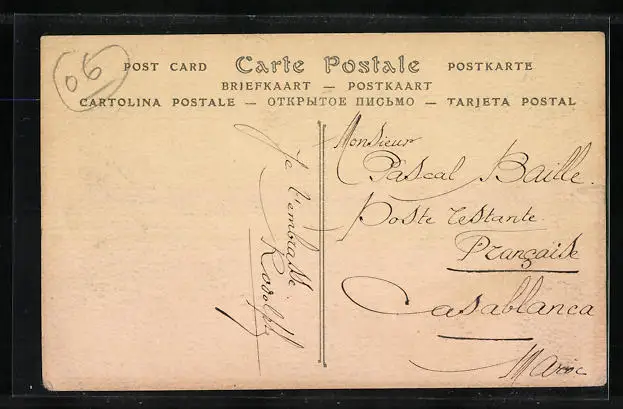 06
POST CARD Carte Postale POSTKARTE
BRIEFKAART — POSTKAART
CARTOLINA POSTALE — ОТКРЫТОЕ ПИСЬМО — TARJETA POSTAL
Je t'embrasse
Rodolphe
Monsieur
Pascal Baille.
Poste restante
Française
Casablanca
Maroc